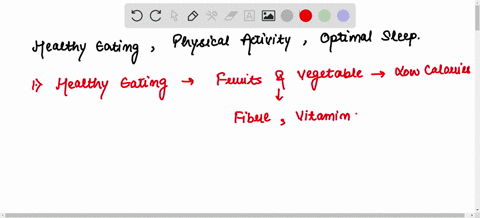 Healthy Eating , Physical Activity , Optimal Sleep.
1) Healthy Eating → Fruits & Vegetable → Low Calories
↓
Fibre , Vitamin